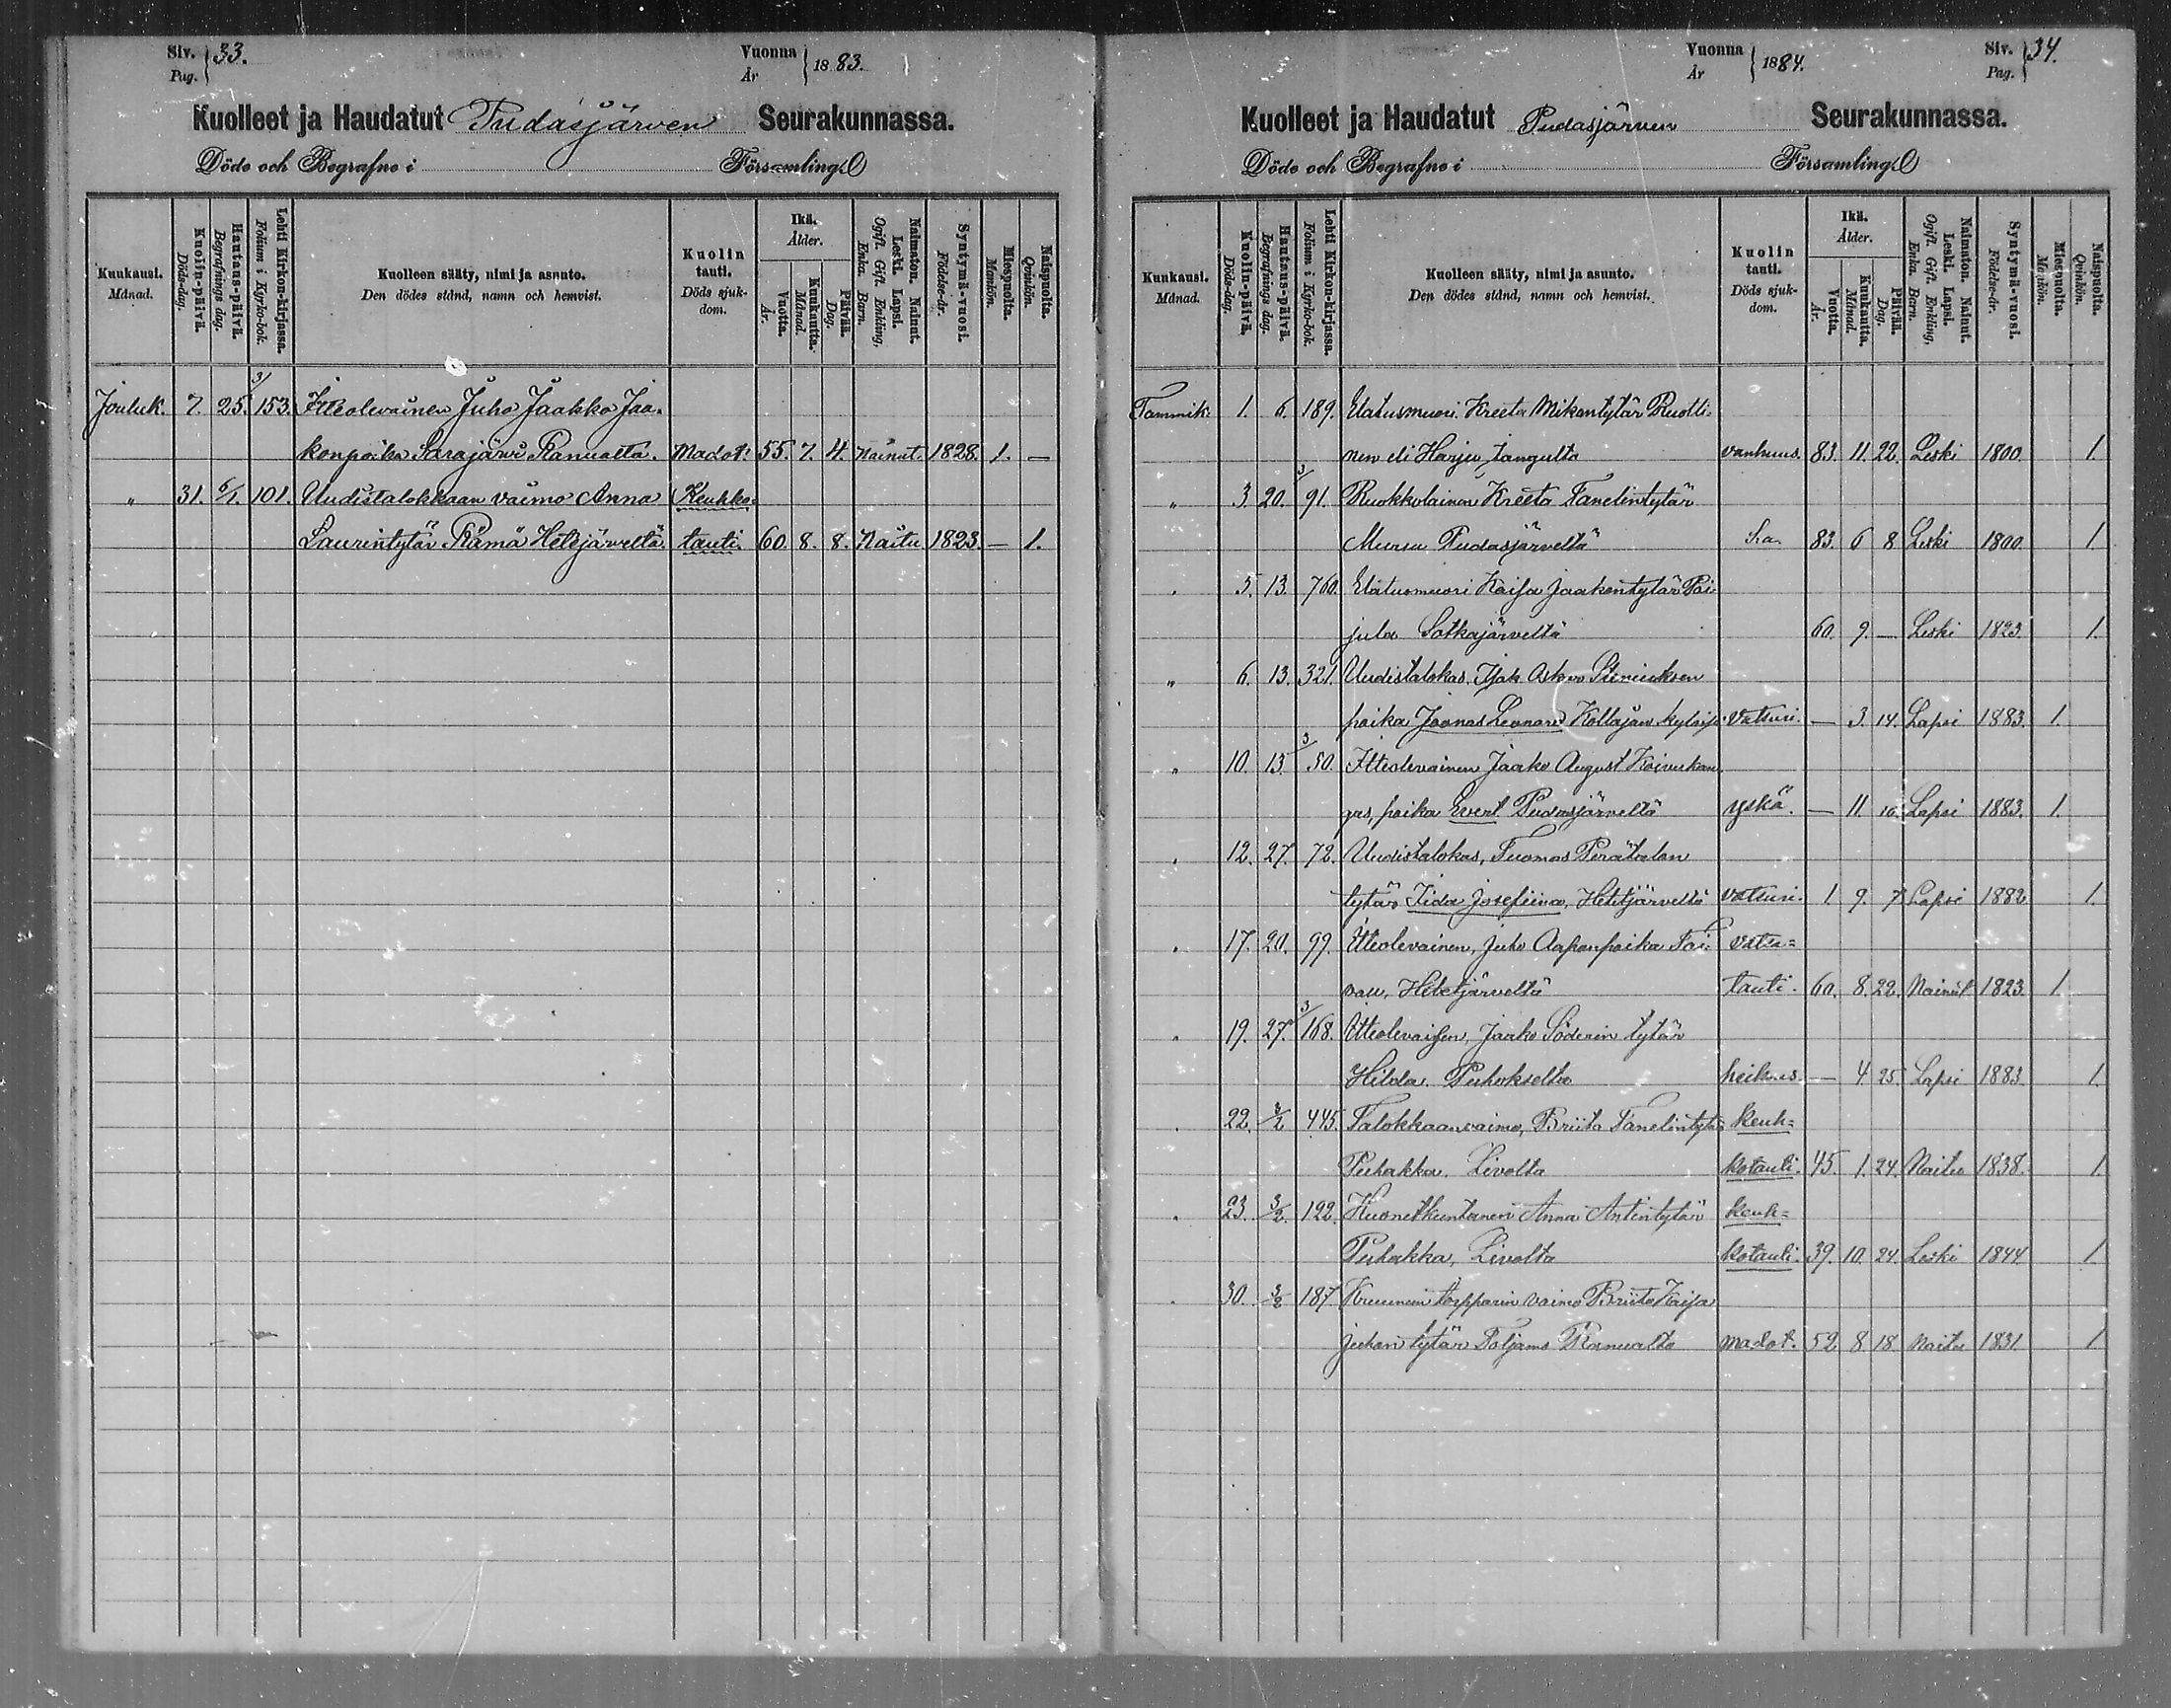 Siv. Pag. } 33.
Vuonna År } 1883.
Kuolleet ja Haudatut Pudasjärven Seurakunnassa.
Döde och Begrafne i Församling
Kuukausi. Månad.
Kuolin-päivä. Döds-dag.
Hautaus-päivä. Begrafnings dag.
Lehti Kirkon-kirjassa. Folium i Kyrko-bok.
Kuolleen sääty, nimi ja asunto. Den dödes stånd, namn och hemvist.
Kuolin tauti. Döds sjuk-dom.
Ikä. Ålder.
Vuotta. År.
Kuukautta. Månad.
Päivää. Dag.
Naimaton. Nainut. Leski. Lapsi. Ogift. Gift. Enkling, Enka. Barn.
Syntymä-vuosi. Födelse-år.
Miespuolta. Mankön.
Naispuolta. Qvinkön.
3/
Jouluk. 7. 25. 153. Itteolevainen Juho Jaakko Jaa-
konpoika Sarajärvi Ranualta. Madot. 55. 7. 4. Nainut. 1828. 1. —
„ 31. 6/1. 101. Uudistalokkaan vaimo Anna Keuhko-
Laurintytär Rämä Hetejärveltä. tauti. 60. 8. 8. Naitu 1823. — 1.
Vuonna År } 1884.
Siv. Pag. } 34.
Kuolleet ja Haudatut Pudasjärven Seurakunnassa.
Döde och Begrafne i Församling
Kuukausi. Månad.
Kuolin-päivä. Döds-dag.
Hautaus-päivä. Begrafnings dag.
Lehti Kirkon-kirjassa. Folium i Kyrko-bok.
Kuolleen sääty, nimi ja asunto. Den dödes stånd, namn och hemvist.
Kuolin tauti. Döds sjuk-dom.
Ikä. Ålder.
Vuotta. År.
Kuukautta. Månad.
Päivää. Dag.
Naimaton. Nainut. Leski. Lapsi. Ogift. Gift. Enkling, Enka. Barn.
Syntymä-vuosi. Födelse-år.
Miespuolta. Mankön.
Naispuolta. Qvinkön.
Tammik. 1. 6. 189. Elatusmuori Kreeta Mikontytär Ruotti-
nen eli Harju, tangulta vanhuus. 83. 11. 22. Leski 1800. 1.
3/
„ 3. 20. 91. Ruokkolainen Kreeta Tanelintytär
Mursu Pudasjärveltä S:a. 83. 6 8 Leski 1800. 1.
„ 5. 13. 760. Elatusmuori Kaisa Jaakontytär Pai-
jula Sotkajärveltä 60. 9. — Leski 1823. 1.
„ 6. 13. 321. Uudistalokas, Isak
poika Joonas Leonard Kollajan vatsuri. — 3. 14. Lapsi 1883. 1.
3/
„ 10. 13. 50. Itteolevainen Jaako August Koivukan-
gas, poika Evert Pudasjärveltä yskä. — 11. 10. Lapsi 1883. 1.
„ 12. 27. 72. Uudistalokas, Tuomas Perätalon
tytär Iida Josefiina, Hetejärveltä vatsuri. 1 9. 7 Lapsi 1882. 1.
„ 17. 20. 99. Itteolevainen, Juho Aaponpoika Tai- vatsa=
val, Hetejärveltä tauti. 60. 8. 22. Nainut 1823. 1.
3/
„ 19. 27. 168. Itteolevaisen, Jaako Söderin tytär
Hilda. Puhokselta heikus. — 4 25 Lapsi 1883. 1.
„ 22. 3/2 445. Talokkaan vaimo, Briita Tanelintytär keuh=
Puhakka. Livolta kotauti. 45. 1. 24. Naitu 1838. 1.
„ 23. 3/2. 122. Huonetkuntanen Anna Antintytär keuh=
Puhakka, Livolta kotauti. 39. 10. 24. Leski 1844. 1.
„ 30. 3/2 187. Kruunun torpparin vaimo Briita Kaisa
Juhontytär Toljamo Ranualta madot. 52 8. 18 Naitu 1831. 1